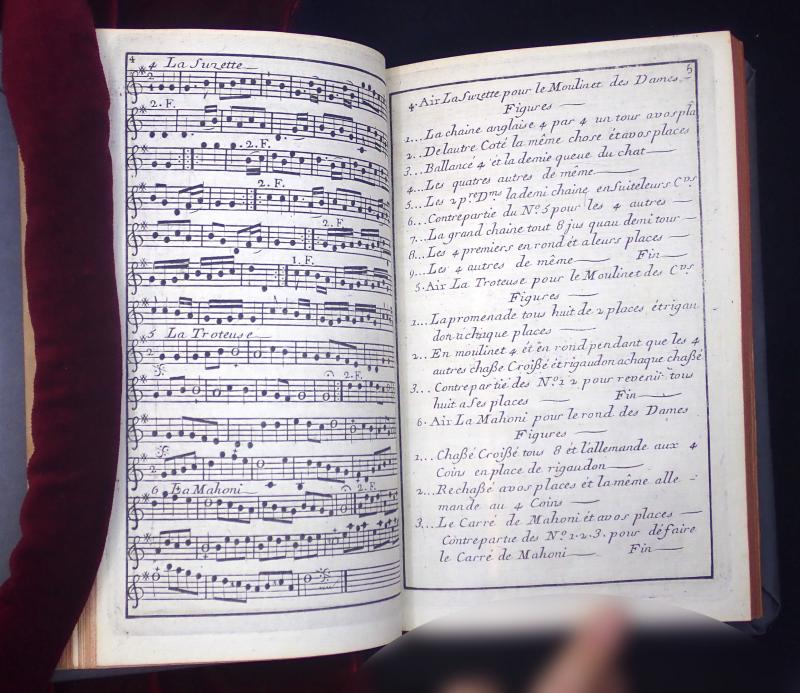 4
4 La Suzette
2. F.
2. F.
2. F.
2. F.
1. F.
5 La Troteuse
2. F.
6 La Mahoni
2. F.
5
4. Air La Suzette pour le Moulinet des Dames
Figures
1... La chaine anglaise 4 par 4 un tour avos pla
2... De lautre Coté la même chose ét avos places
3... Ballancé 4 ét la demie queue du chat
4... Les quatres autres de même
5... Les 2 p.res D.mes la demi chaine ensuite leurs C.rs
6... Contrepartie du N.o 5 pour les 4 autres
7... La grand chaine tout 8 jus quau demi tour
8... Les 4 premiers en rond ét a leurs places
9... Les 4 autres de même Fin
5. Air La Troteuse pour le Moulinet des C.rs
Figures
1... La promenade tous huit de 2 places ét rigau
don a chaque places
2... En moulinet 4 ét en rond pendant que les 4
autres chaße Croißé ét rigaudon a chaque chaßé
3... Contrepartie des N.o 1 2 pour revenir tous
huit a ses places Fin
6. Air La Mahoni pour le rond des Dames
Figures
1... Chaßé Croißé tous 8 ét lallemande aux 4
Coins en place de rigaudon
2... Rechaßé avos places ét la même alle =
mande au 4 Coins
3... Le Carré de Mahoni ét avos places
Contrepartie des N.o 1. 2. 3. pour défaire
le Carré de Mahoni Fin